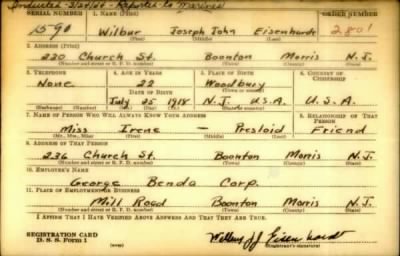 Inducted - 3/24/44 - Reported to Marines
SERIAL NUMBER 1. NAME (Print) ORDER NUMBER
1590 Wilbur Joseph John Eisenhardt 2801
(First) (Middle) (Last)
2. ADDRESS (Print)
220 Church St. Boonton Morris N.J.
(Number and street or R. F. D. number) (Town) (County) (State)
3. TELEPHONE 4. AGE IN YEARS 5. PLACE OF BIRTH 6. COUNTRY OF CITIZENSHIP
None 22 Woodbury
DATE OF BIRTH (Town or county)
July 25 1918 N.J. U.S.A. U.S.A.
(Exchange) (Number) (Mo.) (Day) (Yr.) (State or country)
7. NAME OF PERSON WHO WILL ALWAYS KNOW YOUR ADDRESS 8. RELATIONSHIP OF THAT PERSON
Miss Irene — Presloid Friend
(Mr., Mrs., Miss) (First) (Middle) (Last)
9. ADDRESS OF THAT PERSON
236 Church St. Boonton Morris N.J.
(Number and street or R. F. D. number) (Town) (County) (State)
10. EMPLOYER'S NAME
George Benda Corp.
11. PLACE OF EMPLOYMENT OR BUSINESS
Mill Road Boonton Morris N.J.
(Number and street or R. F. D. number) (Town) (County) (State)
I AFFIRM THAT I HAVE VERIFIED ABOVE ANSWERS AND THAT THEY ARE TRUE.
REGISTRATION CARD
D. S. S. Form 1 (over) Wilbur J J Eisenhardt
(Registrant's signature)